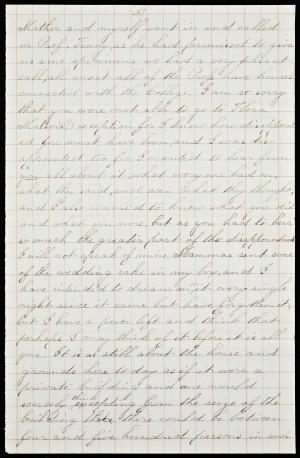 5
Mother and myself went in and called
on Prof. Tenney as he had promised to give
us some specimens we had a very pleasant
call, all most all of the Profs have homes
connected with the College. I am so sorry
that you were not able to go to Flora
reception for I know how disappoint
ed you must have been, and I was dis
appointed too for I wanted to hear from
you all about it what every one had on,
what they said, and even what they thought,
and I also wanted to know what you did
and what you wore but as you had to bear
so much the greater part of the disappointment
I will not speak of mine. Mamma sent some
of the wedding cake in my box, and I
have intended to dream on it every single
night since it came but have forgotten it,
but I have a piece left and think that
perhaps I may think of it before it is all
gone. It is as still about the house and
grounds here to day as if it were a
private building and one would
scarcely think excepting from the size of the
building that there could be between
four and five hundred persons in and